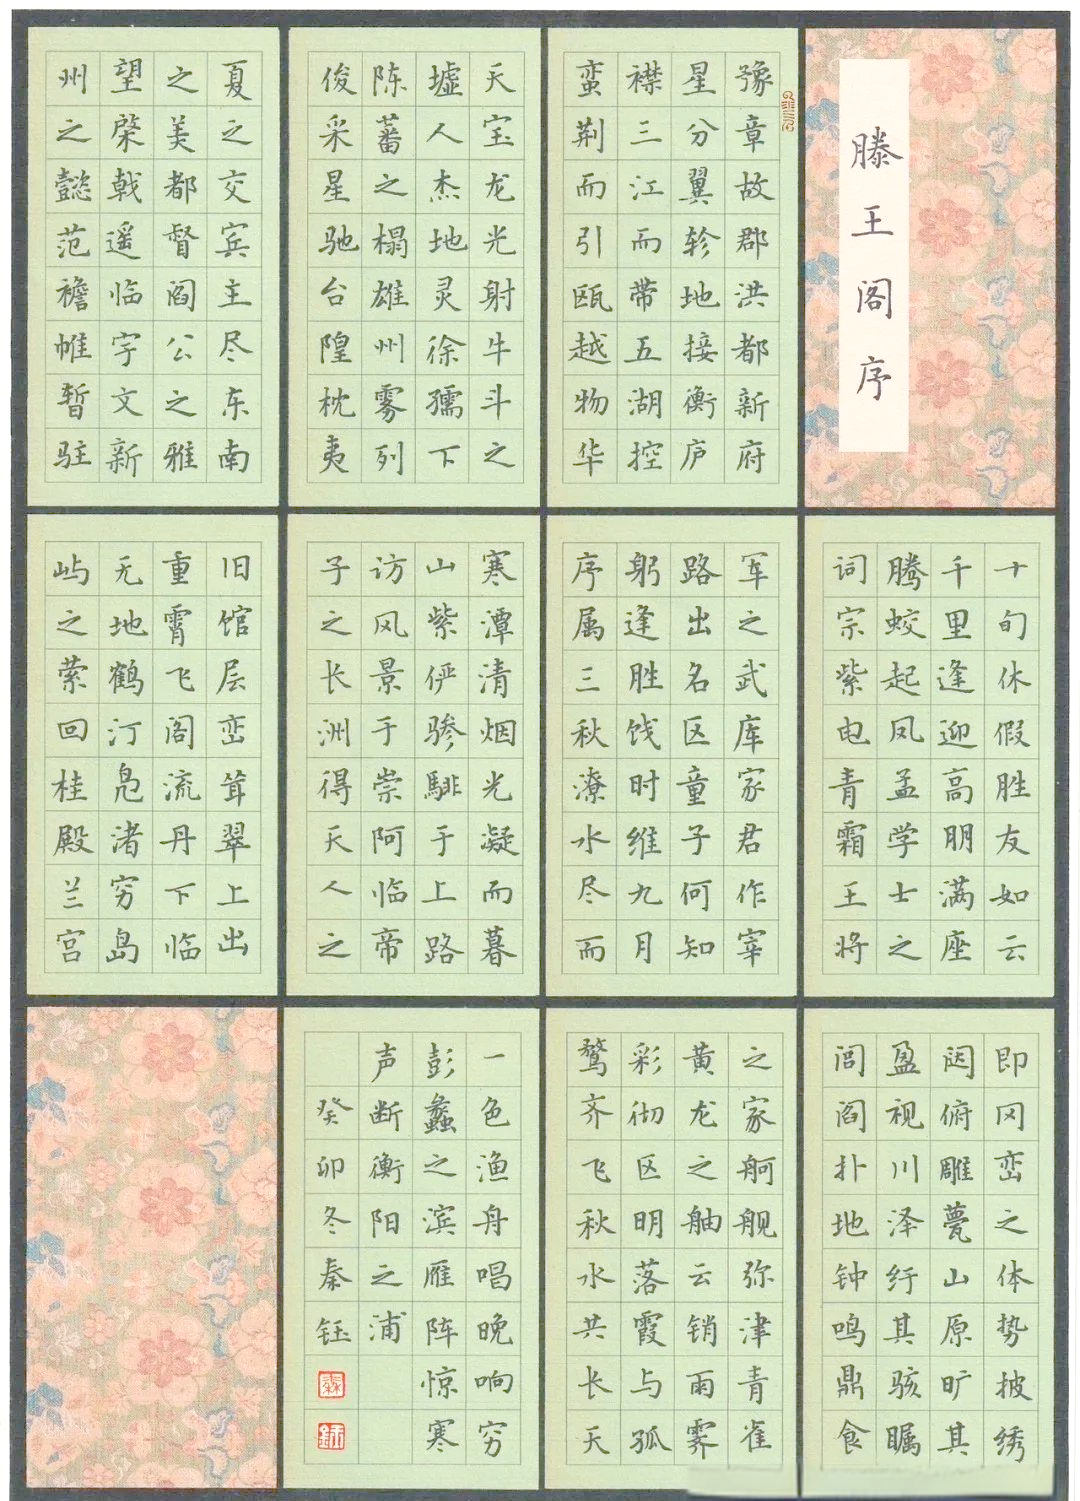 滕王阁序
豫章故郡洪都新府
星分翼轸地接衡庐
襟三江而带五湖控
蛮荆而引瓯越物华
天宝龙光射牛斗之
墟人杰地灵徐孺下
陈蕃之榻雄州雾列
俊采星驰台隍枕夷
夏之交宾主尽东南
之美都督阎公之雅
望棨戟遥临宇文新
州之懿范襜帷暂驻
十旬休假胜友如云
千里逢迎高朋满座
腾蛟起凤孟学士之
词宗紫电青霜王将
军之武库家君作宰
路出名区童子何知
躬逢胜饯时维九月
序属三秋潦水尽而
寒潭清烟光凝而暮
山紫俨骖騑于上路
访风景于崇阿临帝
子之长洲得天人之
旧馆层峦耸翠上出
重霄飞阁流丹下临
无地鹤汀凫渚穷岛
屿之萦回桂殿兰宫
即冈峦之体势披绣
闼俯雕甍山原旷其
盈视川泽纡其骇瞩
闾阎扑地钟鸣鼎食
之家舸舰弥津青雀
黄龙之舳云销雨霁
彩彻区明落霞与孤
鹜齐飞秋水共长天
一色渔舟唱晚响穷
彭蠡之滨雁阵惊寒
声断衡阳之浦
癸卯冬秦钰